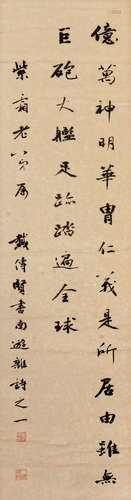 億萬神明華胄仁義是所居由雖無
巨砲大艦足跡踏遍全球
紫雲老八兄屬 戴傳賢書南遊雜詩之一